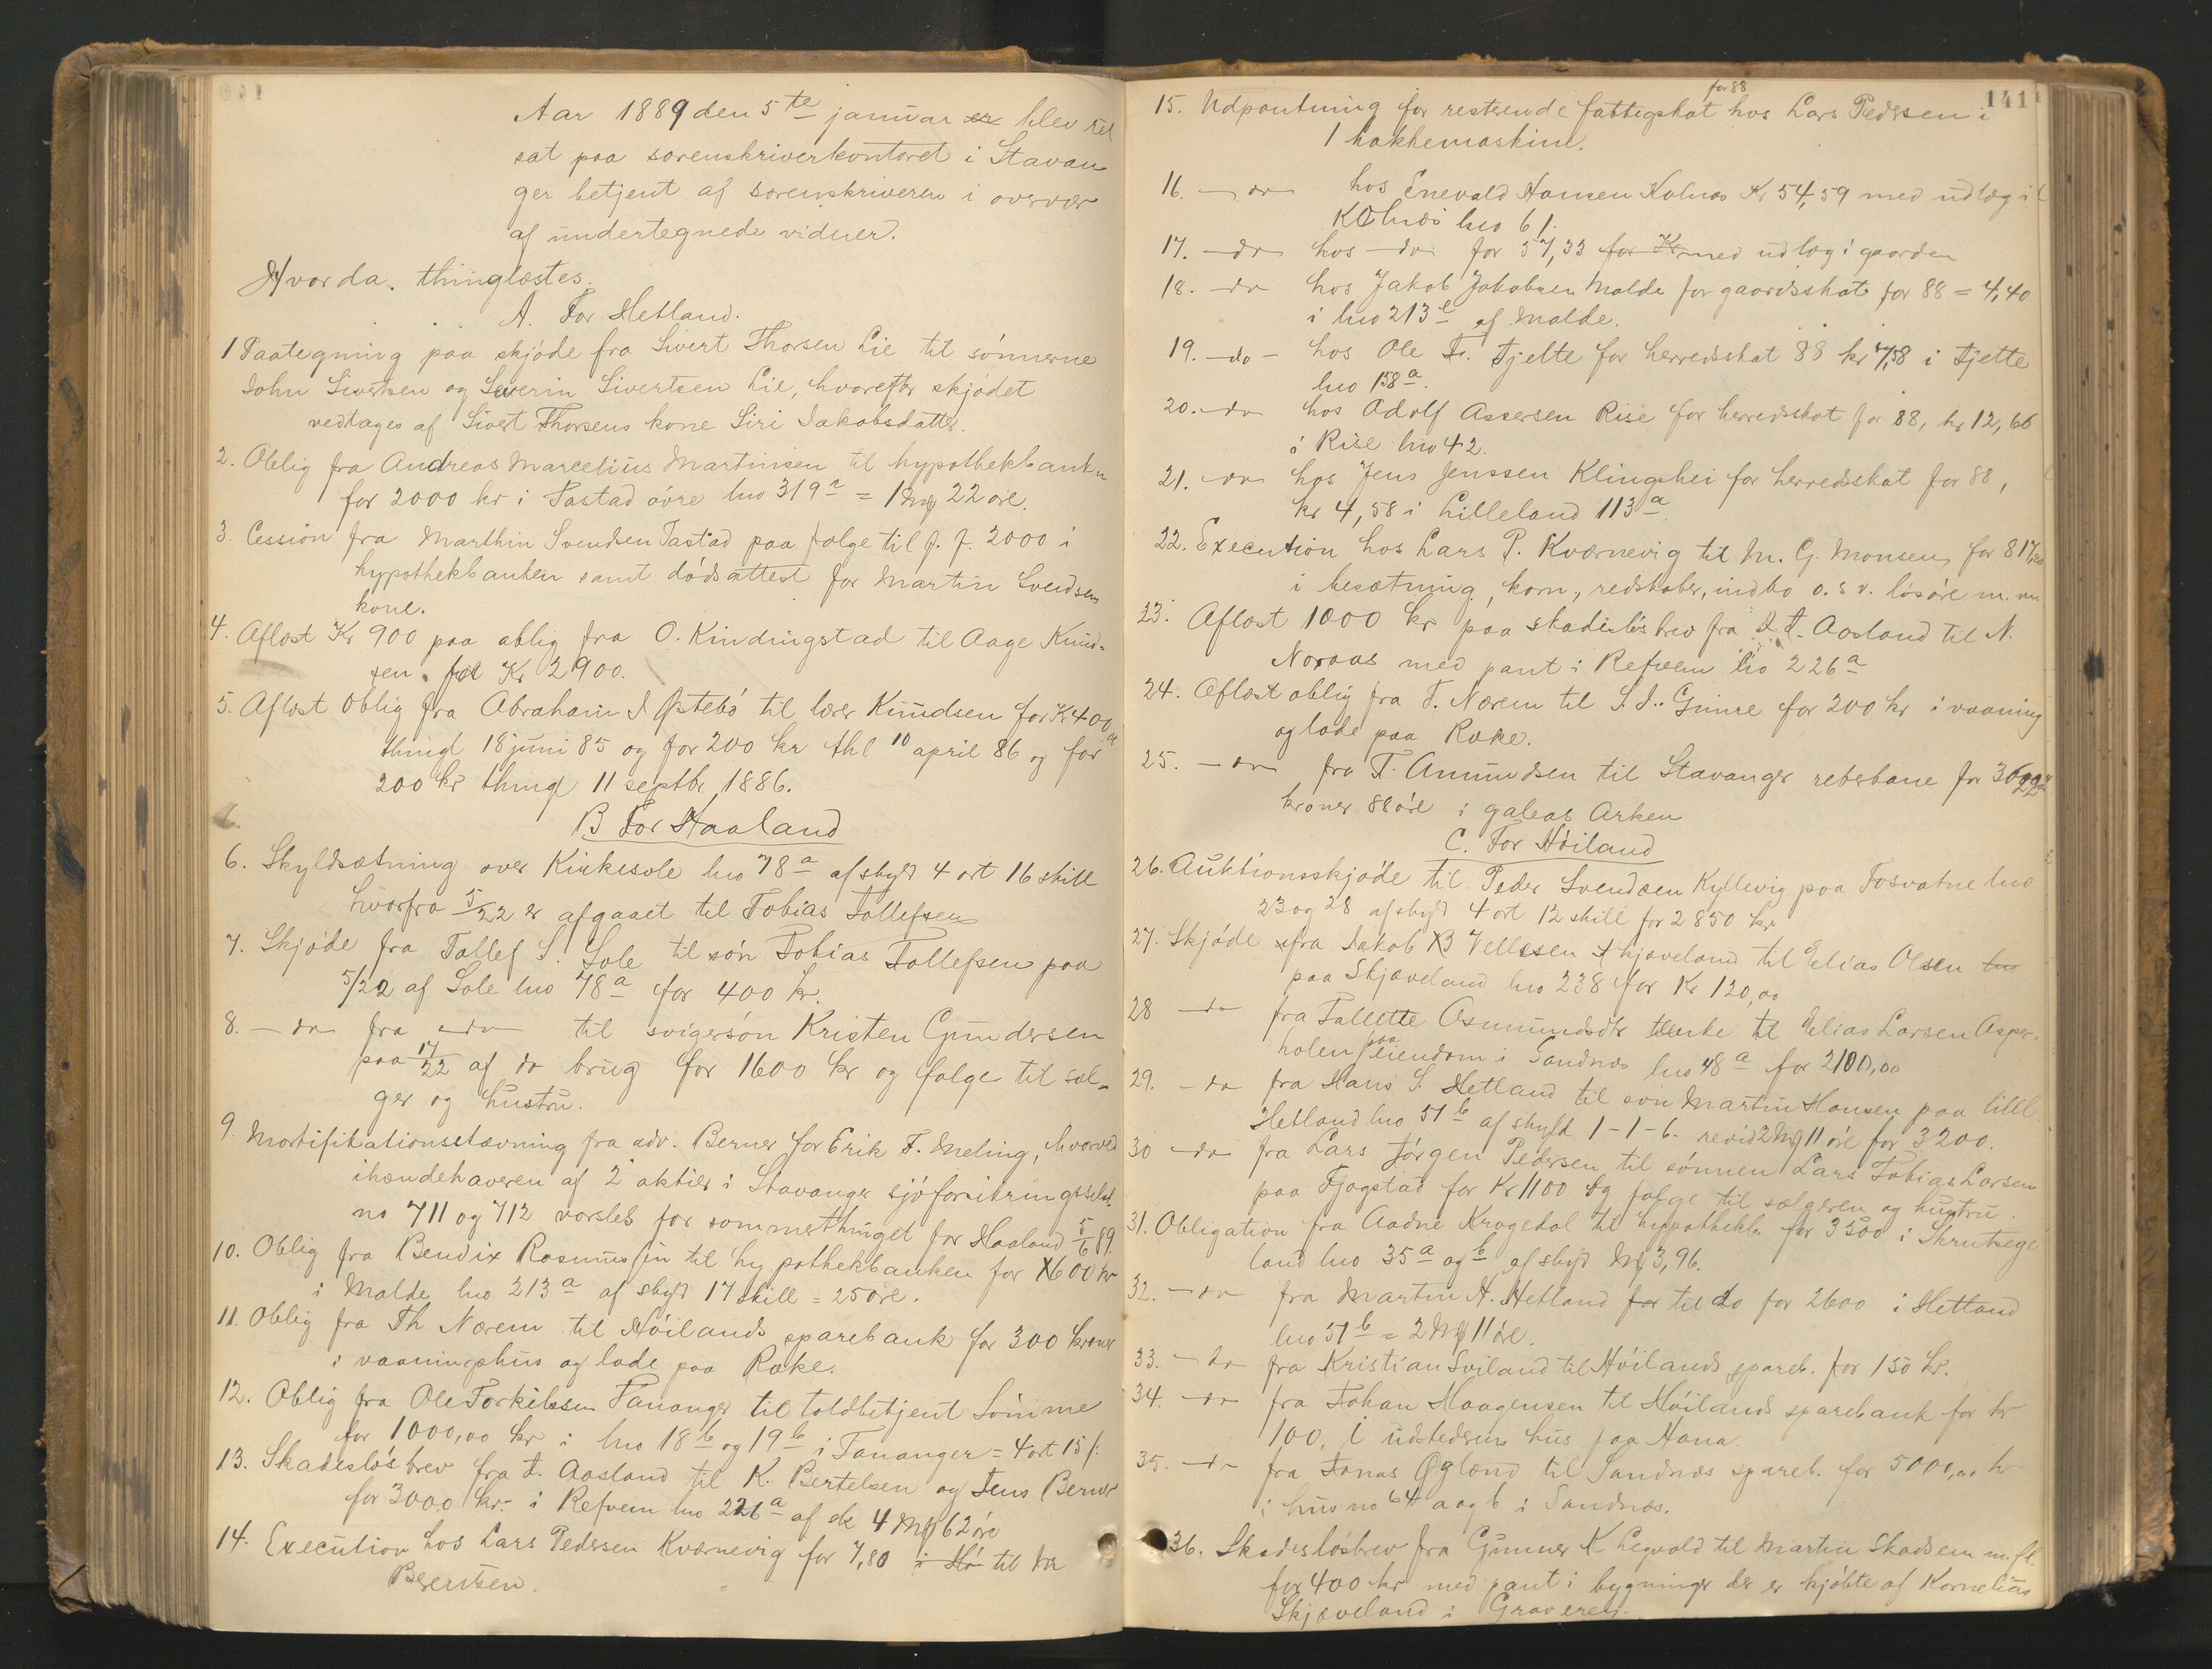 Aar 1889 den 5te januar er blev ret
sat paa sorenskriverkontoret i Stavan
ger betjent af sorenskriveren i overvær
af undertegnede vidner.
Hvor da. thinglæstes.
A. For Hetland.
1 Paategning paa skjøde fra Sivert Thorsen Lie til sønnerne
John Sivertsen og Severin Sivertsen Lie, hvorefter skjødet
vedtages af Sivert Thorsens kone Siri Jakobsdatter.
2. Oblig fra Andreas Marcelius Martinsen til hypothekbanken
for 2000 kr i Tastad øvre lno 319a = 1 Mk 22 øre.
3. Cession fra Marthin Svendsen Tastad paa følge til f. f. 2000 i
hypothekbanken samt dødsattest for Martin Svendsens
kone.
4. Aflæst Kr 900 paa oblig fra O. Kindingstad til Aage Knud-
sen. Kr 2900.
5. Aflæst oblig fra Abraham I Østebø til lærer Knudsen for Kr 400
thingl 18 juni 85 og for 200 kr thl 10 april 86 og for
200 kr thingl 11 septbr 1886.
B For Haaland
6. Skyldsætning over Kirkesole lno 78a af skyld 4 ort 16 skill
hvorfra 5/22 er afgaaet til Tobias Tollefsen
7. Skjøde fra Tollef S. Sole til søn Tobias Tollefsen paa
5/22 af Sole lno 78a for 400 kr.
8. - do - fra - do - til svigersøn Kristen Gundersen
paa 17/22 af do brug for 1600 kr og følge til sæl-
ger og hustru.
9. Mortifikationsstævning fra adv. Berner for Erik T. Meling, hvorved
ihændehaveren af 2 aktier i Stavanger sjøforsikringsselsk.
no 711 og 712 varsles for sommerthinget for Haaland 5/6 89.
10. Oblig fra Bendix Rasmussen til hypothekbanken for 1600 kr
i Malde lno 213a af skyld 17 skill = 25 øre.
11. Oblig fra Th Nærem til Høilands sparebank for 300 kroner
i vaaningshus og lade paa Ræke.
12. Oblig fra Ole Torkilsen Tananger til toldbetjent Sømme
for 1000,00 kr i lno 18b og 19b i Tananger = 4 ort 15 s:
13. Skadesløsbrev fra T. Aasland til K. Bertelsen og Jens Berner
for 3000 kr. i Refvem lno 226a af sk 4 Mk 62 øre
14. Execution hos Lars Pedersen Kværnevig for 7,80 i Hø til
Berentsen.
141
15. Udpantning for resterende fattigskat for 88 hos Lars Pedersen i
1 hakkemaskine.
16. - do - hos Enevald Hansen Kolnæs Kr 54,59 med udlæg i
Kolnæs lno 61.
17. - do - hos - do - for 57,33 for Kr med udlæg i gaarden
18. - do hos Jakob Jakobsen Malde for gaardsskat for 88 = 4,40
i lno 213e af Malde.
19. - do - hos Ole Tr. Tjelte for herredsskat 88 kr 4,58 i Tjelte
lno 158a.
20. - do hos Adolf Assersen Rise for herredsskat for 88, kr 12,66
i Rise lno 42.
21. - do hos Jens Jenssen Klingshei for herredsskat for 88,
kr 4,58 i Lilleland 113a
22. Execution hos Lars P. Kværnevig til M. G. Monsen for 817,20
i besætning, korn, redskaber, indbo o. s. v. løsøre m. m.
23. Aflæst 1000 kr paa skadesløsbrev fra T. Aasland til N.
Noraas med pant i Refvem lno 226a
24. Aflæst oblig fra T. Nærem til S. S. Gimre for 200 kr i vaaning
og lade paa Ræke.
25. - do - fra T. Amundsen til Stavanger reberbane for
kroner 88 øre i galeas Arken
C. For Høiland
26. Auktionsskjøde til Peder Svendsen Kyllevig paa Fosvatne lno
23 og 28 af skyld 4 ort 12 skill for 2850 kr
27. Skjøde fra Jakob B Vellesen Skjæveland til Elias Olsen lno
paa Skjæveland lno 238 for Kr 120,00
28 - do - fra Tallette Asmundsdtr enke til Elias Larsen Asper-
holen paa eiendom i Sandnæs lno 48a for 2100,00
29. - do fra Hans S. Hetland til søn Martin Hansen paa lille
Hetland lno 51b af skyld 1-1-6. revid 2 Mk 11 øre for 3200.
30 - do fra Lars Jørgen Pedersen til sønnen Lars Tobias Larsen
paa Fjogstad for Kr 1100 og følge til sælgeren og hustru.
31. Obligation fra Aadne Krogedal til hypothekb. for 3500 i Skrutsege
land lno 35a og b af skyld Mk 3,96.
32. - do - fra Martin H. Hetland for til do for 2600 i Hetland
lno 51b = 2 Mk 11 øre.
33. - do fra Kristian Sviland til Høilands spareb. for 150 kr.
34. - do fra Johan Haagensen til Høilands sparebank for kr
100. i udstederens hus paa Hana.
35. - do - fra Jonas Øglænd til Sandnæs spareb. for 5000,00 kr
i hus no 64 a og b i Sandnæs.
36. Skadesløsbrev fra Gunner K Legvold til Martin Skadsem m. fl.
for 400 kr med pant i bygninger der er kjøbte af Kornelius
Skjæveland i Graveren.